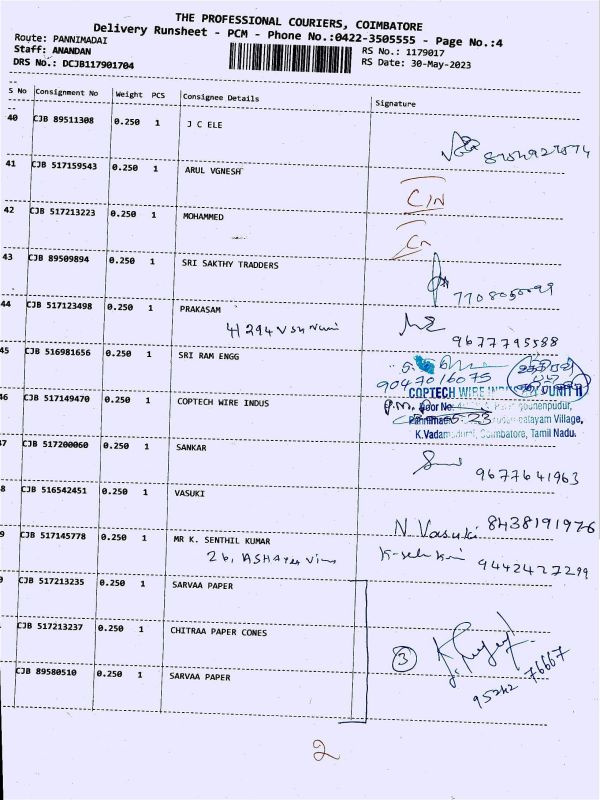 THE PROFESSIONAL COURIERS, COIMBATORE
Delivery Runsheet - PCM - Phone No.:0422-3505555 - Page No.:4
Route: PANNIMADAI
Staff: ANANDAN
RS No.: 1179017
DRS No.: DCJB117901704
RS Date: 30-May-2023
S No Consignment No Weight PCS Consignee Details Signature
40 CJB 89511308 0.250 1 J C ELE
41 CJB 517159543 0.250 1 ARUL VGNESH
C/N
42 CJB 517213223 0.250 1 MOHAMMED
43 CJB 89509894 0.250 1 SRI SAKTHY TRADDERS
7708050099
44 CJB 517123498 0.250 1 PRAKASAM
9677795588
45 CJB 516981656 0.250 1 SRI RAM ENGG
9047016075
46 CJB 517149470 0.250 1 COPTECH WIRE INDUS
COPTECH WIRE UNIT II
Door No.
Village,
Coimbatore, Tamil Nadu.
47 CJB 517200060 0.250 1 SANKAR
9677641963
8 CJB 516542451 0.250 1 VASUKI
N Vasuki 8438191976
9 CJB 517145778 0.250 1 MR K. SENTHIL KUMAR
26,
9442427299
0 CJB 517213235 0.250 1 SARVAA PAPER
CJB 517213237 0.250 1 CHITRAA PAPER CONES
3
CJB 89580510 0.250 1 SARVAA PAPER
95242 76667
2